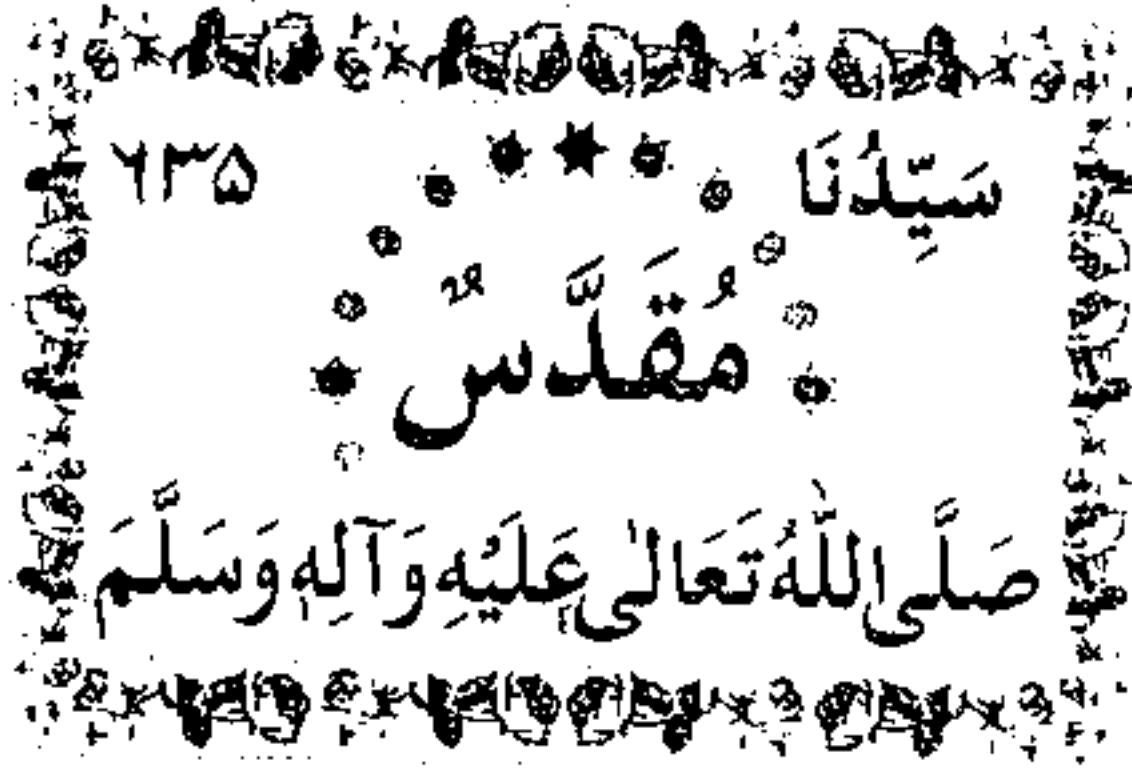 سَيِّدُنَا ۶۳۵
مُقَدَّسٌ
صَلَّى اللّٰهُ تَعَالٰى عَلَيْهِ وَآلِهٖ وَسَلَّمَ